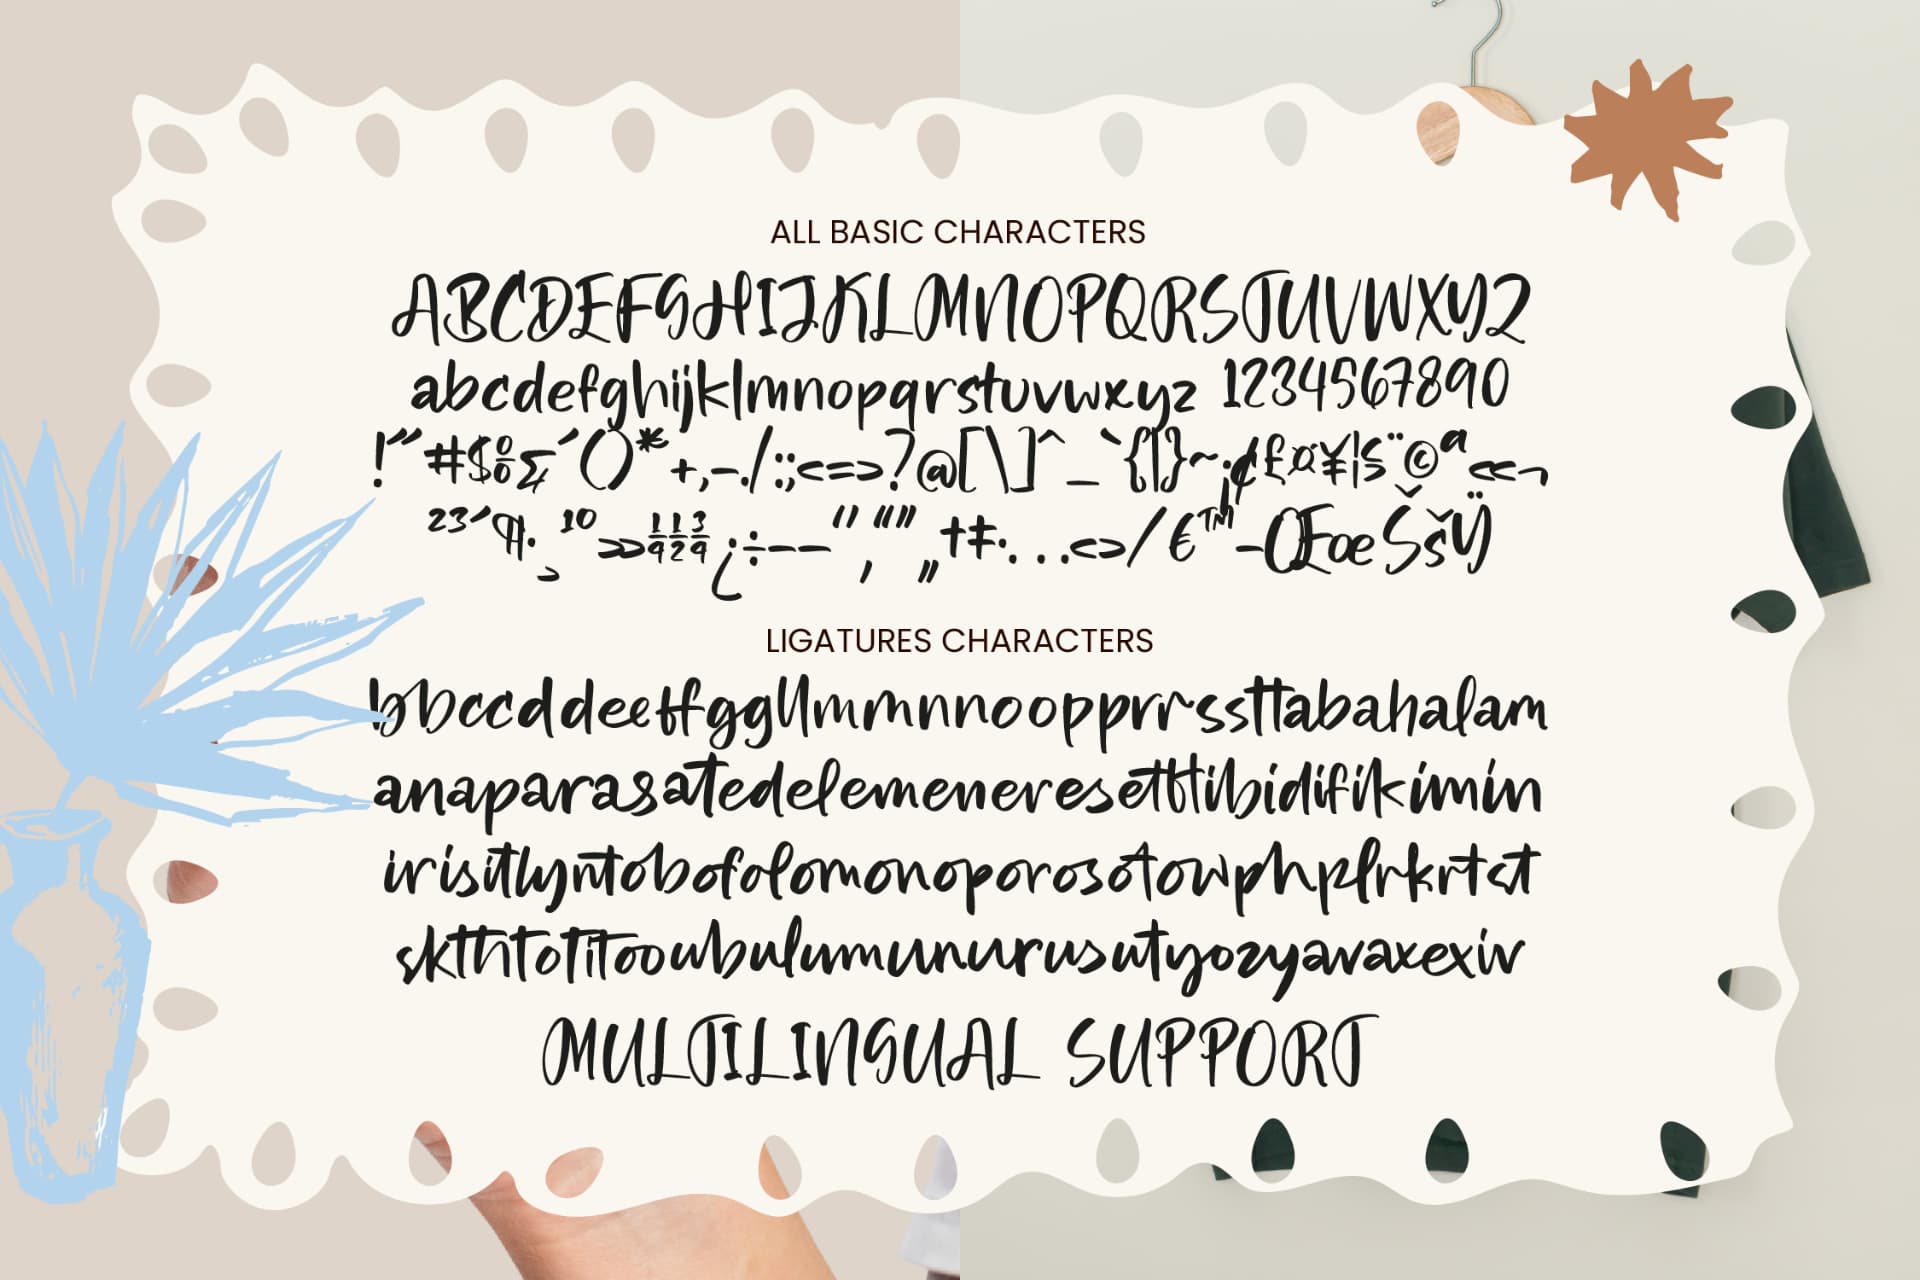 ALL BASIC CHARACTERS
ABCDEFGHIJKLMNOPQRSTUVWXYZ
abcdefghijklmnopqrstuvwxyz 1234567890
!"#$%&'()*+,-./:;<=>?@[\]^_`{|}~¡¢£¤¥¦§¨©ª«¬
²³´¶·¸¹º»¼½¾¿÷–—‘’‚“”„†‡•…‹›⁄€™−ŒœŠšŸ
LIGATURES CHARACTERS
bbccddeeffggllmmnnoopprrssttabahalam
anaparasatedelemeneresetftibidifikimin
irisitlyntobofolomonoporosotowphplrkrtst
skthtotitooubulumunurusutyozyavaxexiv
MULTILINGUAL SUPPORT